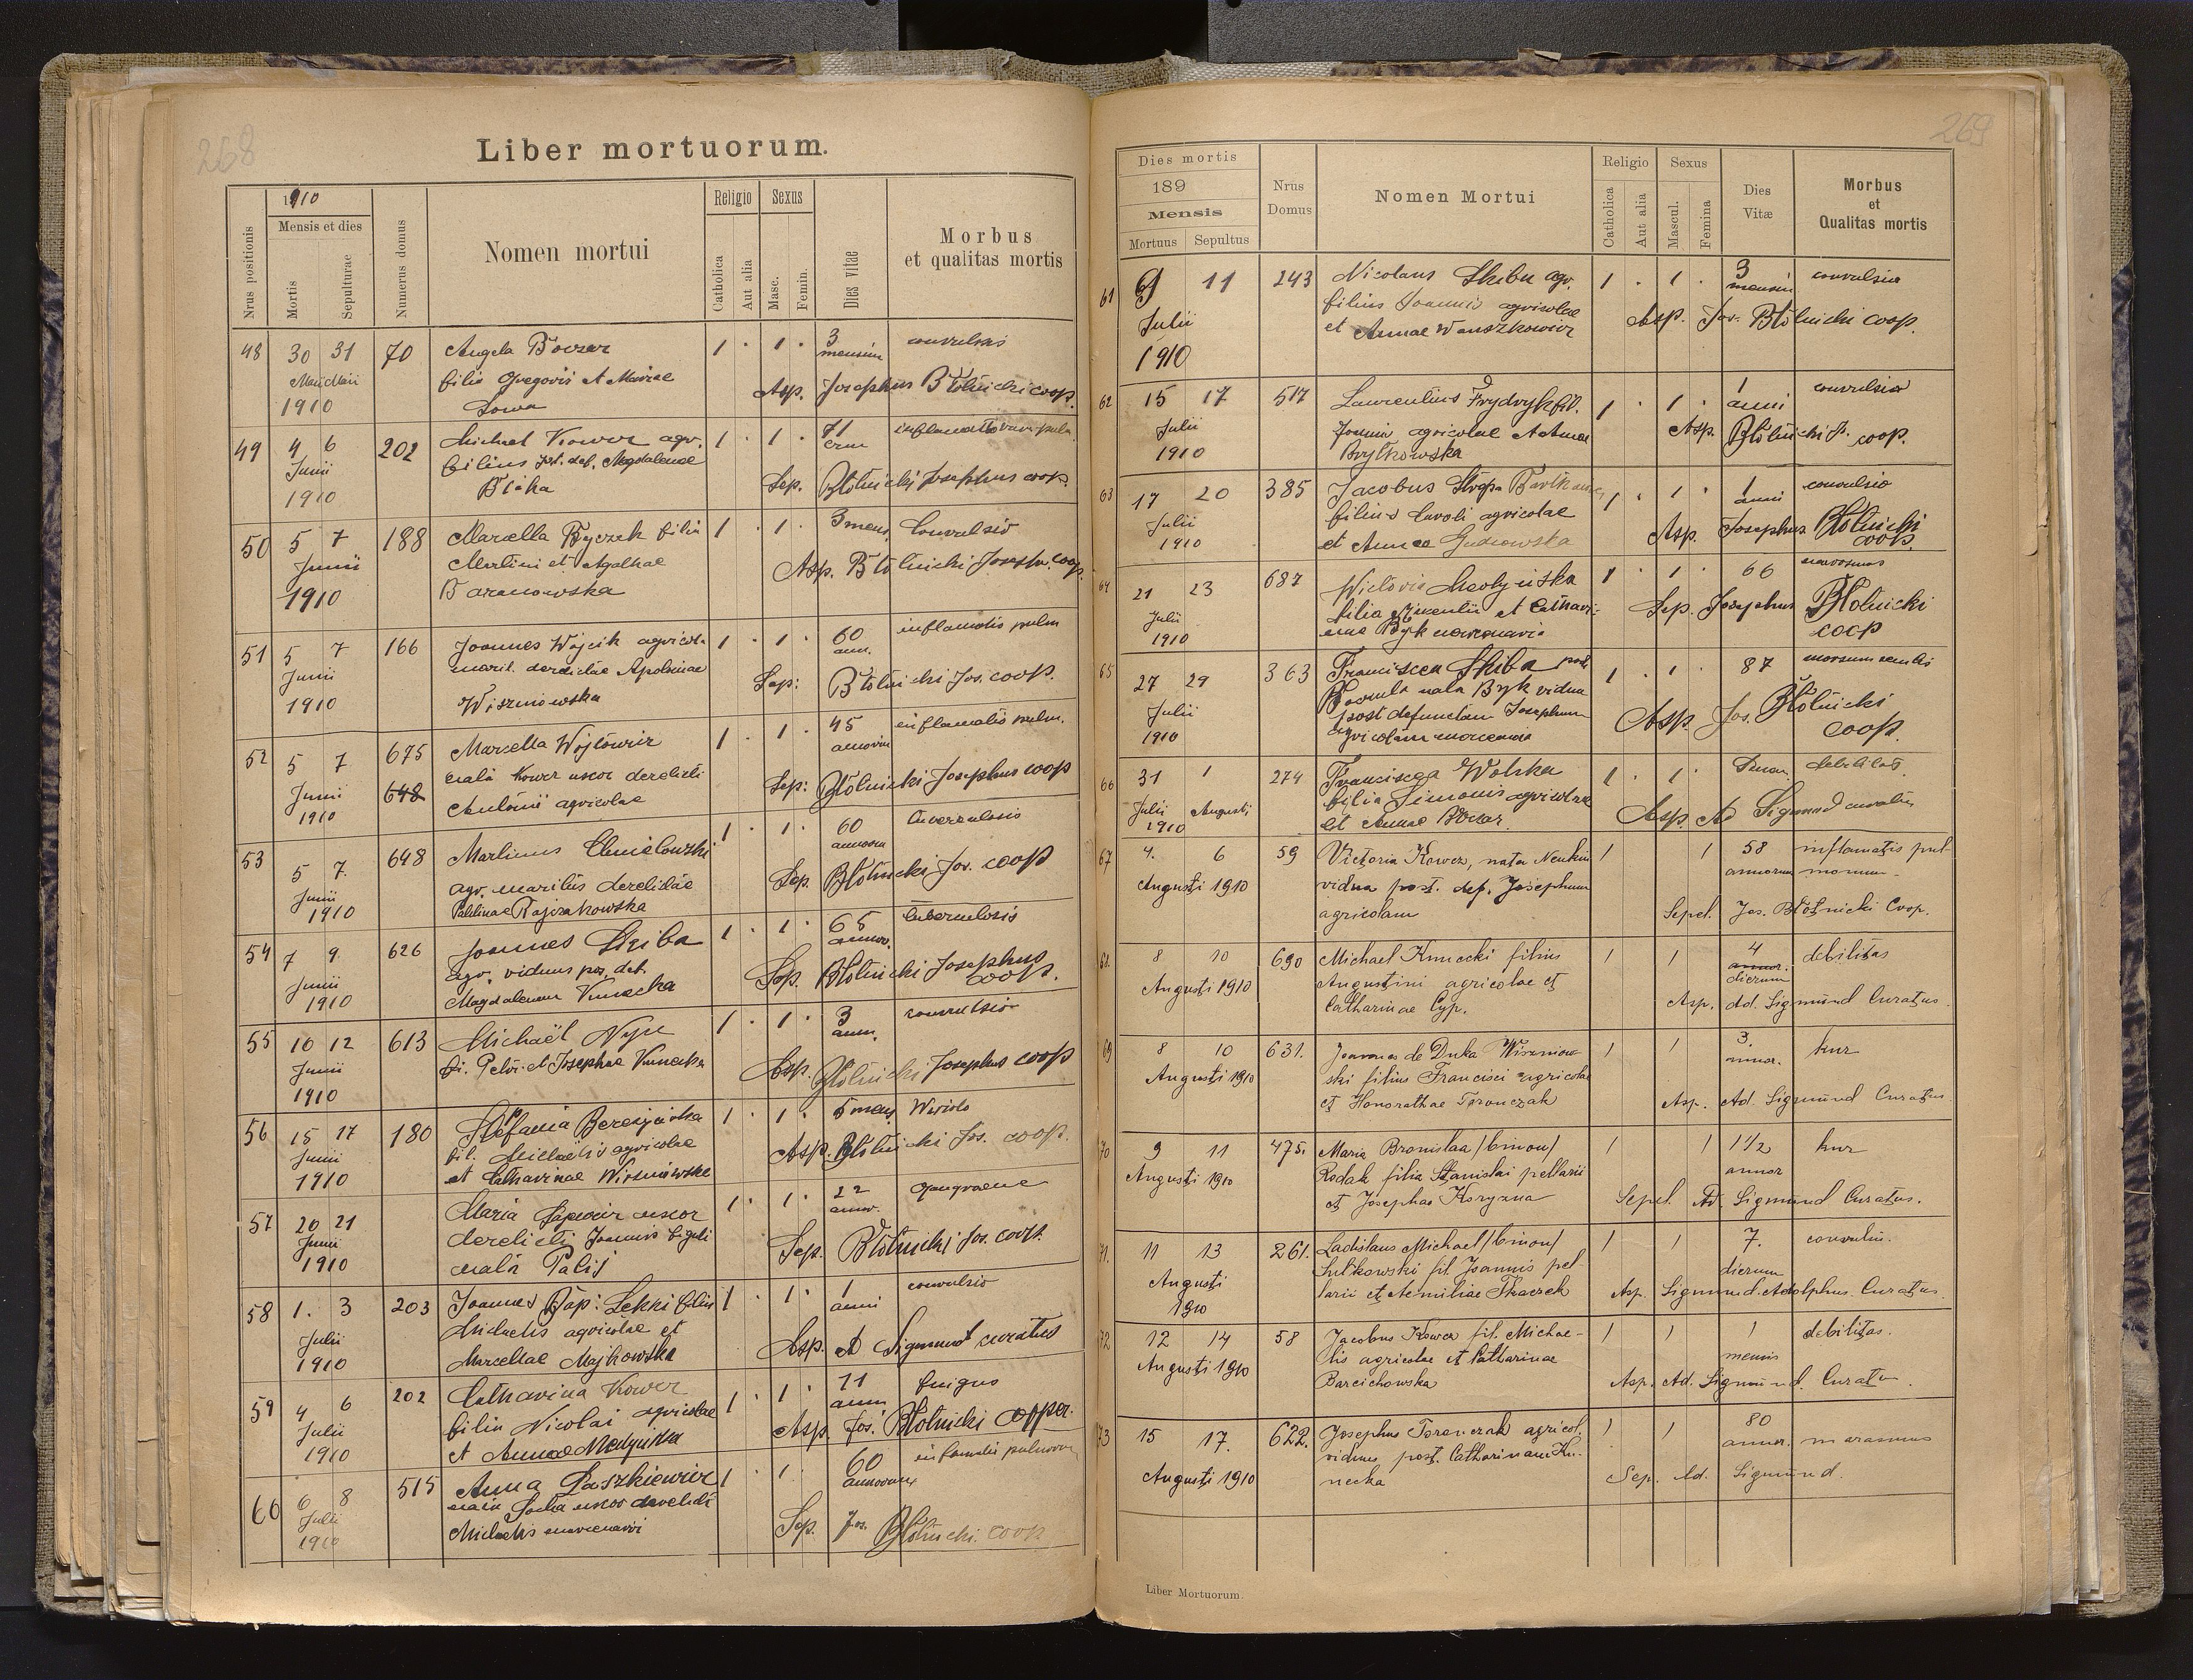 268
Liber mortuorum.
Nrus positionis
1910
Mensis et dies
Mortis
Sepulturae
Numerus domus
Nomen mortui
Religio
Catholica
Aut alia
Sexus
Masc.
Femin.
Dies vitae
Morbus
et qualitas mortis
48 30 31 70 Angela 1 · 1 · 3 convulsis
Maii Maii filia Gregorii et Mariae mensium
1910 Sowa Asp. Josephus Błotnicki coop.
49 4 6 202 Michael Kower agr. 1 · 1 · 71
Junii filius def. Magdalenae
1910 Sep. Błotnicki Josephus coop.
50 5 7 188 Marcella filia 1 · 1 · 3 mens. Convulsio
Junii Martini et Agathae Asp. Błotnicki coop.
1910 Baranowska
51 5 7 166 Joannes Wojcik agricola 1 · 1 · 60 inflamatis pulm
Junii marit. derelictae Apoloniae ann.
1910 Wiszniowska Sep: Błotnicki Jos. coop.
52 5 7 675 Marcella Wojtowicz 1 · 1 · 45 inflamatis pulm.
Junii 648 nata Kower uxor derelicti annorum
1910 Antonii agricolae Sep: Błotnicki Josephus coop
53 5 7. 648 Martinus 1 · 1 · 60 tuberculosis
Junii agr. maritus derelictae annorum
1910 Sep. Błotnicki Jos. coop
54 7 9. 626 Joannes Skiba 1 · 1 · 65 tuberculosis
Junii agr. viduus pos. def. annor.
1910 Magdalenam Kunecka Sep. Błotnicki Josephus coop.
55 10 12 613 Michaël Nyse 1 · 1 · 3 convulsio
Junii fi. Petri et Josephae Kunecka ann.
1910 Asp. Błotnicki Josephus coop
56 15 17 180 Stefania 1 · 1 · 5 mens
Junii fil. Michaelis agricolae
1910 et Catharinae Wiszniowska Asp. Błotnicki Jos. coop.
57 20 21 Maria uxor 1 · 1 · 22 gangraena
Junii derelicti Joannis figuli annor.
1910 nata Palij Sep. Błotnicki Jos. coop.
58 1. 3 203 Joannes Bap: Lekki filius 1 · 1 · 1 convulsio
Julii Michaelis agricolae et anni
1910 Marcellae Majkowska Asp. A Sigmund curatus
59 4 6 202 Catharina Kower 1 · 1 · 11
Julii filia Nicolai agricolae ann
1910 et Annae Asp. Jos. Błotnicki
60 6 8 515 Anna Laszkiewicz 1 · 1 · 60
Julii nata uxor derelicti annorum
1910 Michaelis mercenarii Sep. Jos. Błotnicki coop
269
Dies mortis
189
Mensis
Mortuus Sepultus
Nrus
Domus
Nomen Mortui
Religio
Catholica
Aut alia
Sexus
Mascul.
Femina
Dies
Vitæ
Morbus
et
Qualitas mortis
61 9 11 243 Nicolaus Skiba agr. 1 · 1 · 3 convulsio
Julii filius Joannis agricolae mensium
1910 et Annae Asp. Jos. Błotnicki coop.
62 15 17 517 Laurentius Frydryk fil. 1 · 1 · 1 convulsio
Julii Joannis agricolae et Annae anni
1910 Asp. Błotnicki J. coop.
63 17 20 385 Jacobus 1 · 1 · 1 convulsio
Julii filius Caroli agricolae anni
1910 et Annae Asp. Josephus Błotnicki coop.
64 21 23 687 1 · 1 · 66
Julii filia et Cathari-
1910 nae Byk mercenaria Sep. Josephus Błotnicki coop
65 27 29 363 Francisca Skiba 1 · 1 · 87
Julii nata Byk vidua
1910 post defunctum Josephum Asp. Jos. Błotnicki coop.
66 31 1 274 Francisca Wolska 1 · 1 · debilitas.
Julii Augusti filia Simonis agricolae
1910 et Annae Asp. Ad Sigmund curatus
67 4. 6 59 Victoria Kowcz, nata 1 1 58 inflamatis pul-
Augusti 1910 vidua post. def. Josephum annorum monum.
agricolam Sepel. Jos. Błotnicki Coop.
68. 8 10 690 Michael Kunecki filius 1 1 4 debilitas
Augusti 1910 Augustini agricolae et annor. dierum
Catharinae Cyp. Asp. Ad. Sigmund Curatus.
69 8 10 631. Joannes de Duka Wiszniow- 1 1 3. kur
Augusti 1910 ski filius Francisci agricolae annor.
et Honorathae Taronczak Asp. Ad. Sigmund Curatus.
70 9 11 475. Maria Bronislaa /binom/ 1 1 1½ kur
Augusti 1910 Rodak filia Stanislai pellarii annor
et Josephae Sepel. Ad. Sigmund Curatus.
71. 11 13 261. Ladislaus Michael /binom/ 1 1 7. convulsi.
Augusti Sulikowski fil. Joannis pel- dierum
1910 larii et Aemiliae Tkaczek Asp. Sigmund Adolphus Curatus.
72 12 14 58 Jacobus Kowcz fil. Michae- 1 1 1 debilitas.
Augusti 1910 lis agricolae et Catharinae mensis
Barcichowska Asp. Ad. Sigmund. Curatu.
73 15 17. 622. Josephus Taronczak agricol. 1 1 80
Augusti 1910 viduus post. Catharinam Ku- annor. marasmus
necka Sep. Ad. Sigmund.
Liber Mortuorum.